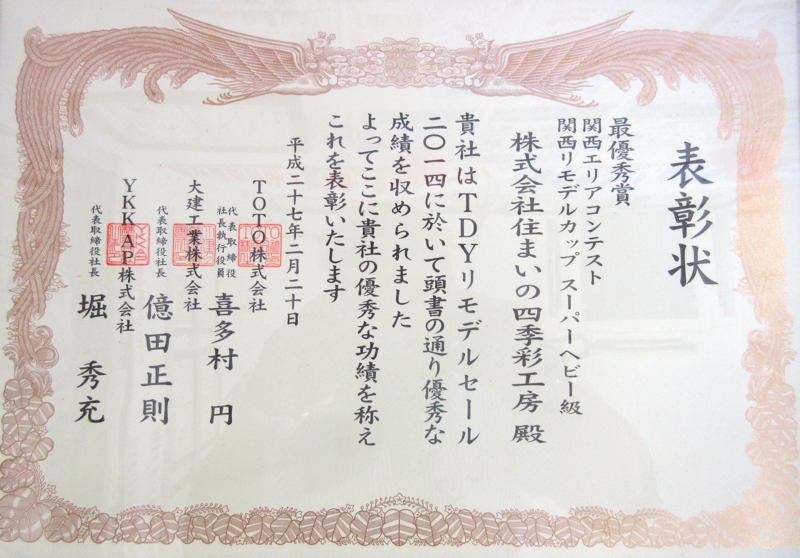 表彰状
最優秀賞
関西エリアコンテスト
関西リモデルカップ スーパーヘビー級
株式会社住まいの四季彩工房 殿
貴社はTDYリモデルセール
二〇一四に於いて頭書の通り優秀な
成績を収められました
よってここに貴社の優秀な功績を称え
これを表彰いたします
平成二十七年二月二十日
TOTO株式会社
代表取締役
社長執行役員
喜多村 円
大建工業株式会社
代表取締役社長
億田正則
YKK AP株式会社
代表取締役社長
堀 秀充